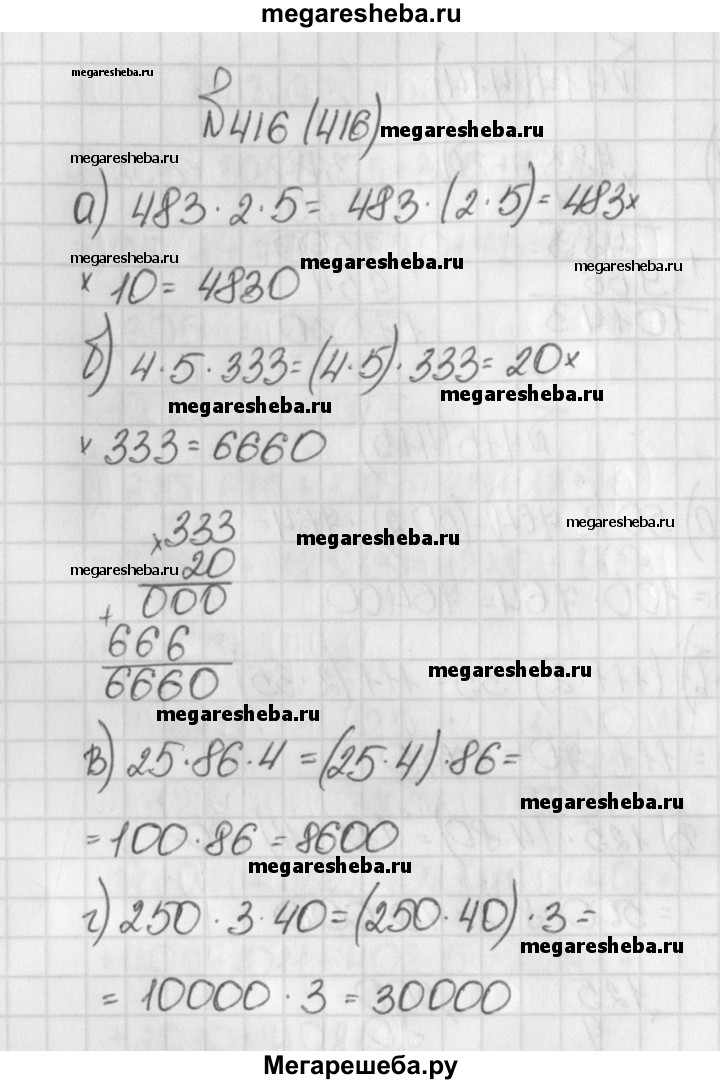 megaresheba.ru
megaresheba.ru
№416 (416) megaresheba.ru
megaresheba.ru
а) 483 · 2 · 5 = 483 · (2 · 5) = 483 ×
megaresheba.ru megaresheba.ru megaresheba.ru
× 10 = 4830
б) 4 · 5 · 333 = (4 · 5) · 333 = 20 ×
megaresheba.ru megaresheba.ru
× 333 = 6660
× 333 megaresheba.ru megaresheba.ru
megaresheba.ru 20
000
+
666
6660 megaresheba.ru
megaresheba.ru
в) 25 · 86 · 4 = (25 · 4) · 86 =
megaresheba.ru
= 100 · 86 = 8600
megaresheba.ru
г) 250 · 3 · 40 = (250 · 40) · 3 =
megaresheba.ru
= 10000 · 3 = 30000
Мегарешеба.ру